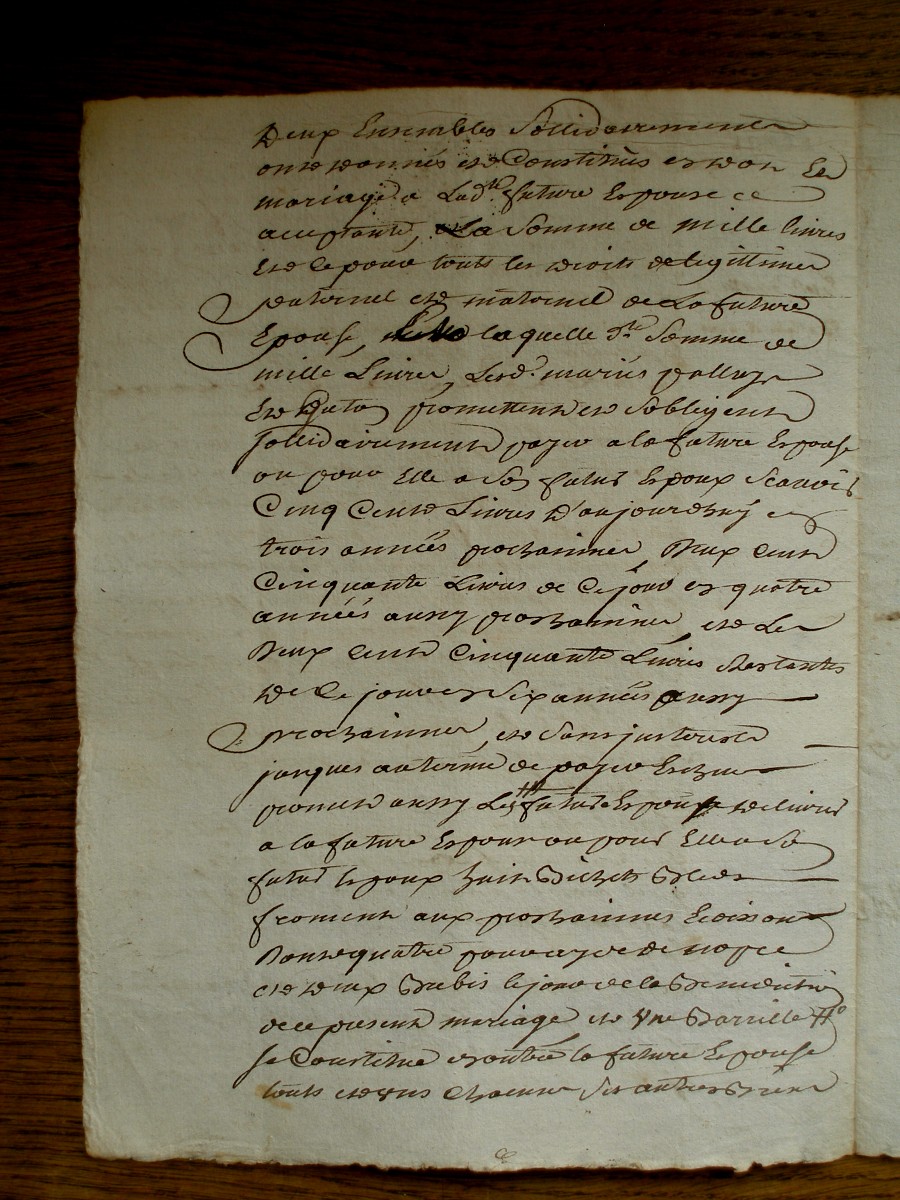 Deux Ensembles Sollidairement
ont donnés et Constitués en dot Et
mariage a Lad.te future Espouse ce
acceptante, La Somme de mille livres
Et ce pour touts les droits de legittimes
paternel et maternel de La future
Epouse, laquelle d.te Somme de
mille Livres, Lesd. mariés
Et promettent et Sobligent
Sollidairement payer a la future Espouse
ou pour Elle a Son futur Espoux Scavoir
Cinq Cents Livres d'aujourdhuy en
trois années prochaines, Deux cent
Cinquante Livres de Ce jour en quatre
années aussy prochaines, et Les
Deux cent Cinquante Livres Restantes
de Ce jour en Six années aussy
prochaines, et Sans jnterest
jusques au terme de payer Escheu
promet aussy Les futur Espouse delivrer
a la future Espouse ou pour Elle a Son
futur Espoux huit Bichets Bled
froment aux prochaines
quatre pour de nopce
et deux Brebis le jour de la Benediction
de ce present mariage et Une
Se Constitue en outre la future Espouse
touts et uns Chacuns Ses autres Biens